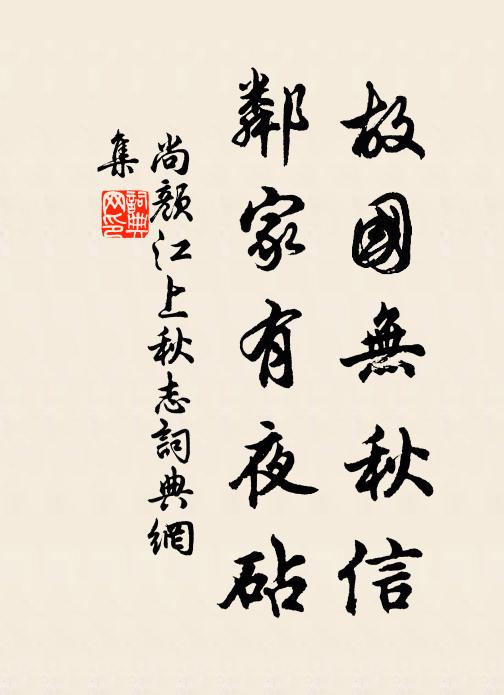 故國無秋信
鄰家有夜砧
尚顏江上秋志詞典網
集
詞典
网印